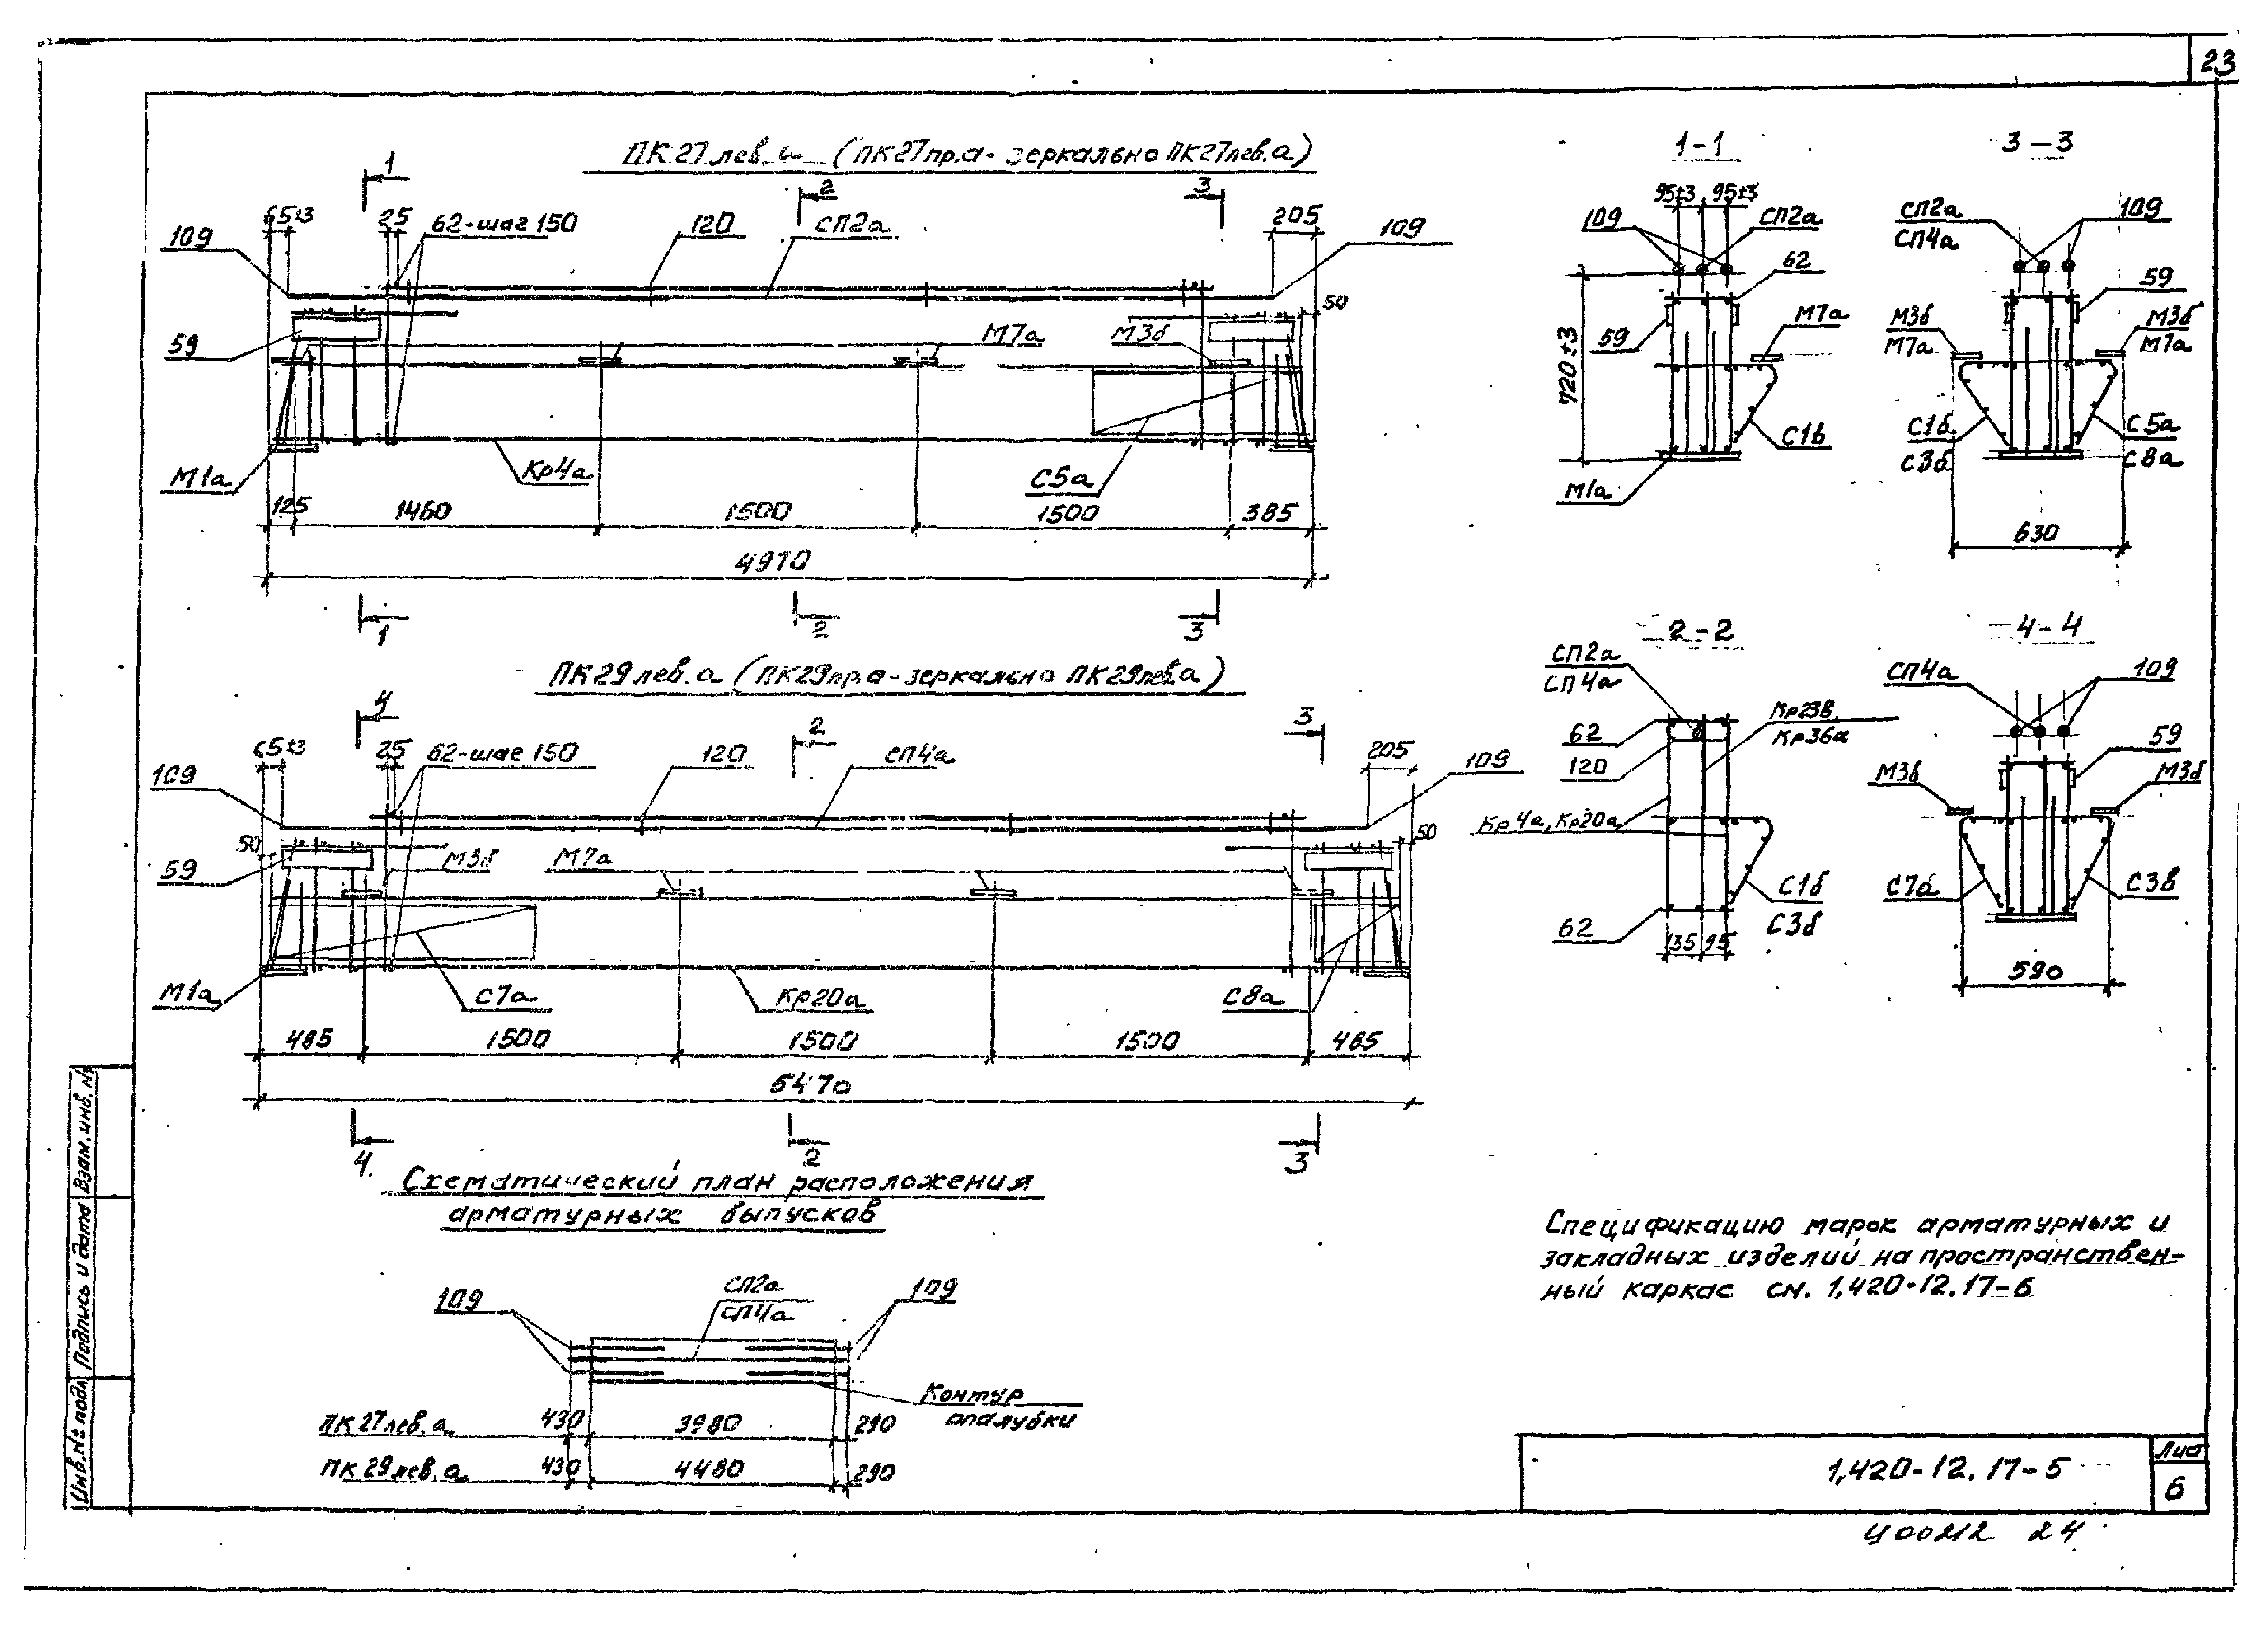 23
ПК27лев.а (ПК27пр.а - зеркально ПК27лев.а)
1
2
3
65±3
25
62-шаг 150
120
СП2а
205
109
109
50
59
М7а
М3б
М1а
Кр4а
С5а
125
1460
1500
1500
385
4970
1
2
3
1-1
95±3
95±3
109
СП2а
62
М7а
59
720±3
С1в
М1а
3-3
СП2а
СП4а
109
59
М3б
М7а
М3б
М7а
С1б
С3б
С5а
С8а
630
ПК29лев.а (ПК29пр.а - зеркально ПК29лев.а)
4
2
3
65±3
25
62-шаг 150
120
СП4а
205
109
109
50
50
59
М3б
М7а
М1а
С7а
Кр20а
С8а
485
1500
1500
1500
485
5470
4
2
3
2-2
СП2а
СП4а
62
120
Кр23в,
Кр36а
Кр4а, Кр20а
С1б
С3б
62
135
95
4-4
СП4а
109
59
М3б
М3б
С7б
С3в
590
Схематический план расположения
арматурных выпусков
109
СП2а
СП4а
109
Контур
опалубки
ПК27лев.а
430
3980
290
ПК29лев.а
430
4480
290
Спецификацию марок арматурных и
закладных изделий на пространствен-
ный каркас см. 1.420-12.17-6
1.420-12.17-5
Лист
6
Ц00212 24
Инв.№ подл.
Подпись и дата
Взам.инв.№